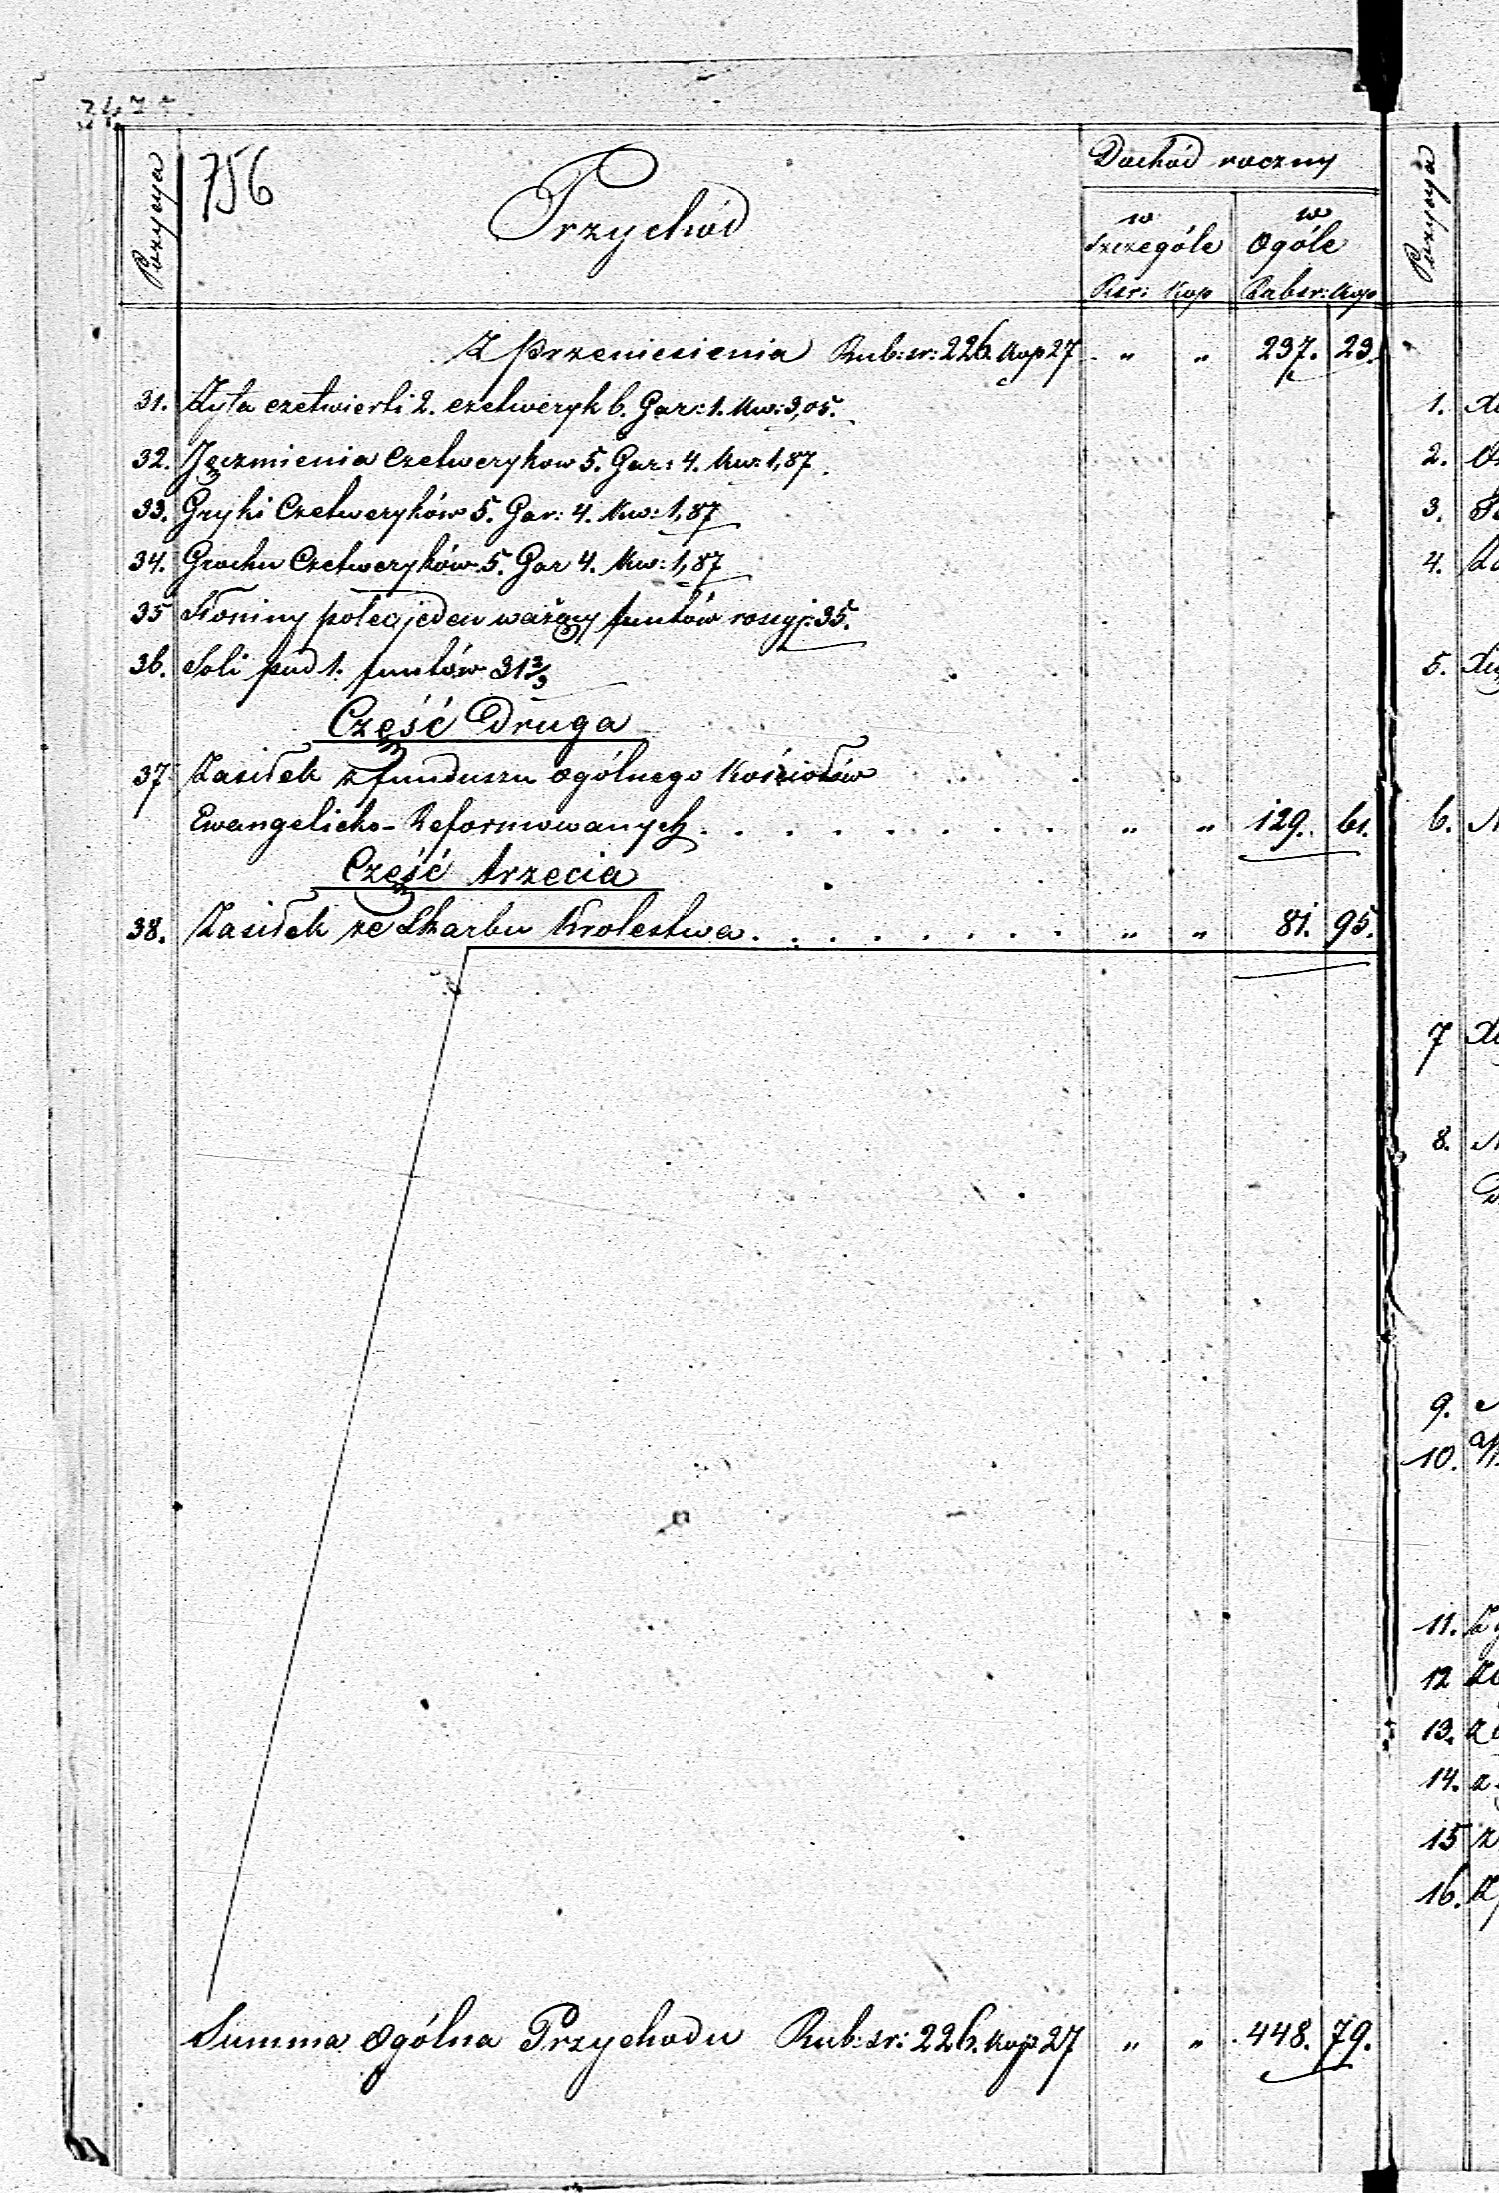 756
Pozycya
Przychód
Dochód roczny
w Szczególe
w Ogóle
Rsr: Kop
Rubsr: Kop
Z przeniesienia Rub: sr: 226. Kop 27 " " 237. 23.
31. Żyta czetwierti 2. czetweryk 6. Gar: 1. Kw: 3,05.
32. Jęczmienia Czetweryków 5. Gar: 4. Kw: 1,87.
33. Gryki Czetweryków 5. Gar: 4. Kw: 1,87
34. Grochu Czetweryków 5. Gar 4. Kw: 1,87
35 Słoniny połeć jeden ważący funtów rossyj: 35.
36. Soli pud 1. funtów 31 2/3
Część Druga
37. Zasiłek z funduszu ogólnego Kościołów
Ewangelicko-Reformowanych . . . . . . . . " " 129. 61.
Część trzecia
38. Zasiłek ze Skarbu Krolestwa . . . . . . . . " " 81. 95.
Summa ogólna Przychodu Rub: sr: 226. Kop 27 " " 448. 79.
Pozycya
1.
2.
3.
4.
5.
6.
7
8.
9.
10.
11.
12
13.
14.
15
16.